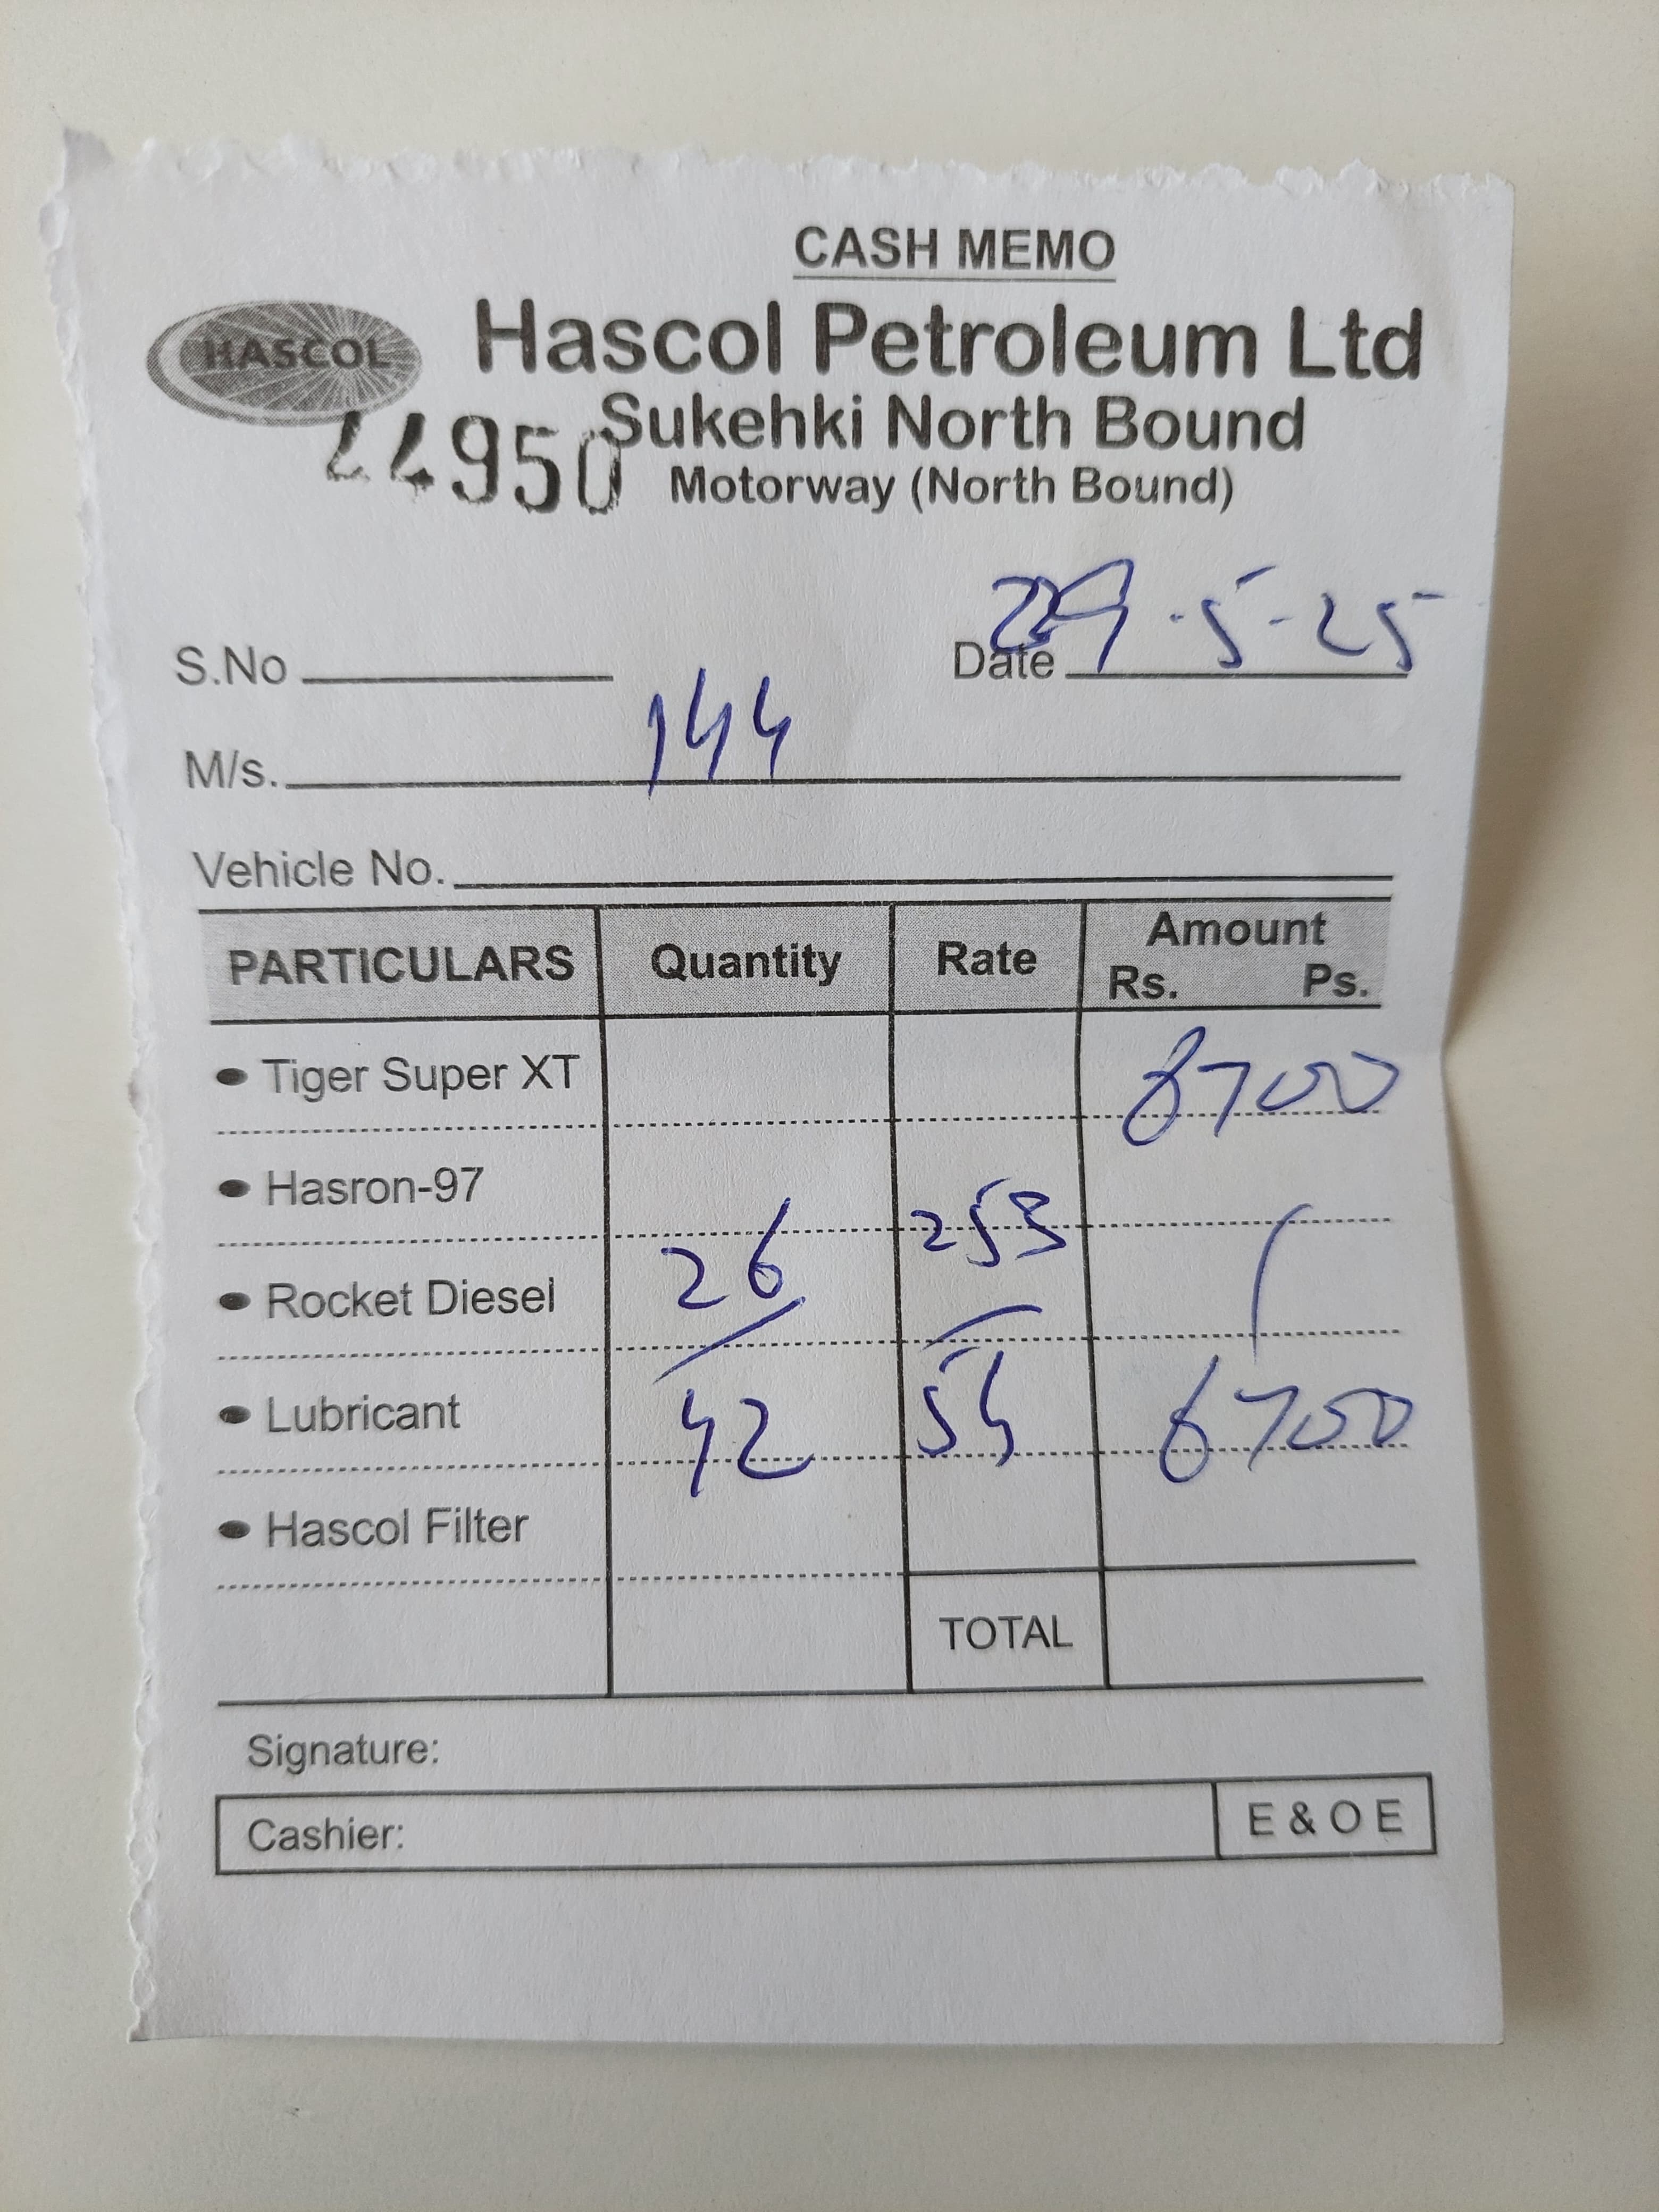 CASH MEMO
HASCOL
Hascol Petroleum Ltd
44950 Sukehki North Bound
Motorway (North Bound)
S.No Date 29-5-25
M/s. 144
Vehicle No.
PARTICULARS Quantity Rate Amount
Rs. Ps.
• Tiger Super XT 6700
• Hasron-97
• Rocket Diesel 26 253
• Lubricant 42 54 6700
• Hascol Filter
TOTAL
Signature:
Cashier: E & O E